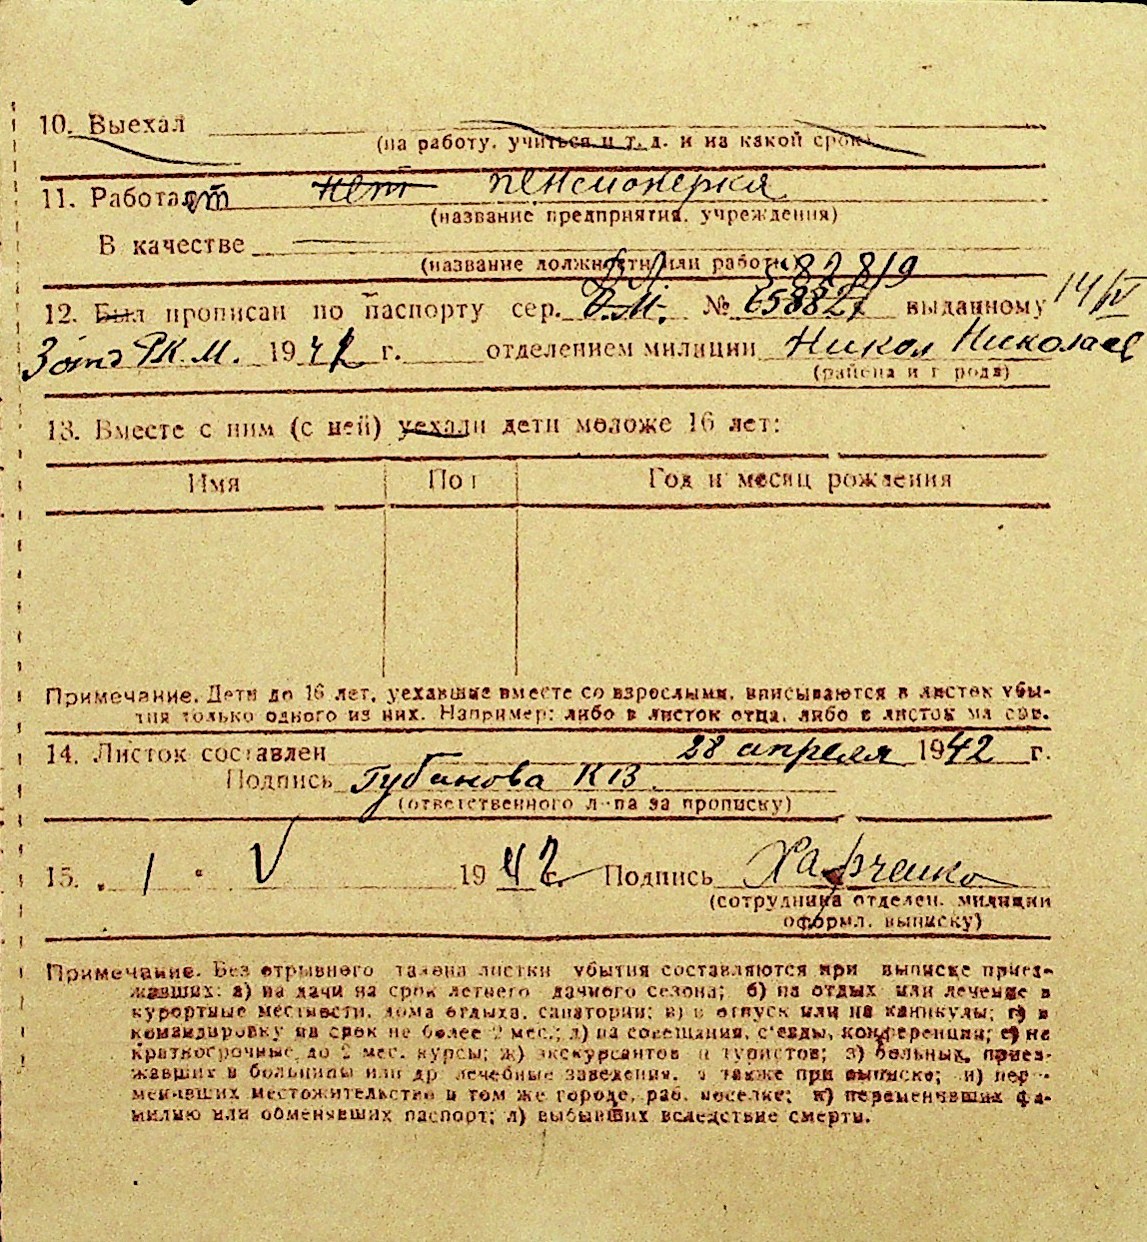 10. Выехал
(на работу, учиться и т. д. и на какой срок)
11. Работает нет пенсионерка
(название предприятия, учреждения)
В качестве
(название должности или работы) 582819
12. Был прописан по паспорту сер. № 658827 выданному 14/IV
3 отд Р.К.М. 1942 г. отделением милиции Никол Николаев
(района и города)
13. Вместе с ним (с ней) уехали дети моложе 16 лет:
Имя Пол Год и месяц рождения
Примечание. Дети до 16 лет, уехавшие вместе со взрослыми, вписываются в листок убы-
тия только одного из них. Например: либо в листок отца, либо в листок матери.
14. Листок составлен 28 апреля 1942 г.
Подпись Губанова КВ
(ответственного лица за прописку)
15. 1 V 1942 г. Подпись Харченко
(сотрудника отделен. милиции
оформл. выписку)
Примечание. Без отрывного талона листки убытия составляются при выписке приез-
жавших: а) на дачи на срок летнего дачного сезона; б) на отдых или лечение в
курортные местности, дома отдыха, санатории; в) в отпуск или на каникулы; г) в
командировку на срок не более 2 мес.; д) на совещания, с'езды, конференции; е) на
краткосрочные, до 2 мес. курсы; ж) экскурсантов и туристов; з) больных, приез-
жавших в больницы или др лечебные заведения, а также при выписке; и) пере-
менивших местожительство в том же городе, раб. поселке; к) переменивших фа-
милию или обменявших паспорт; л) выбывших вследствие смерти.